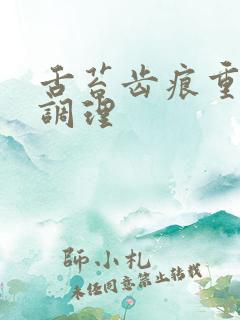 舌苔齿痕重
調理
師小札
未经同意禁止转载